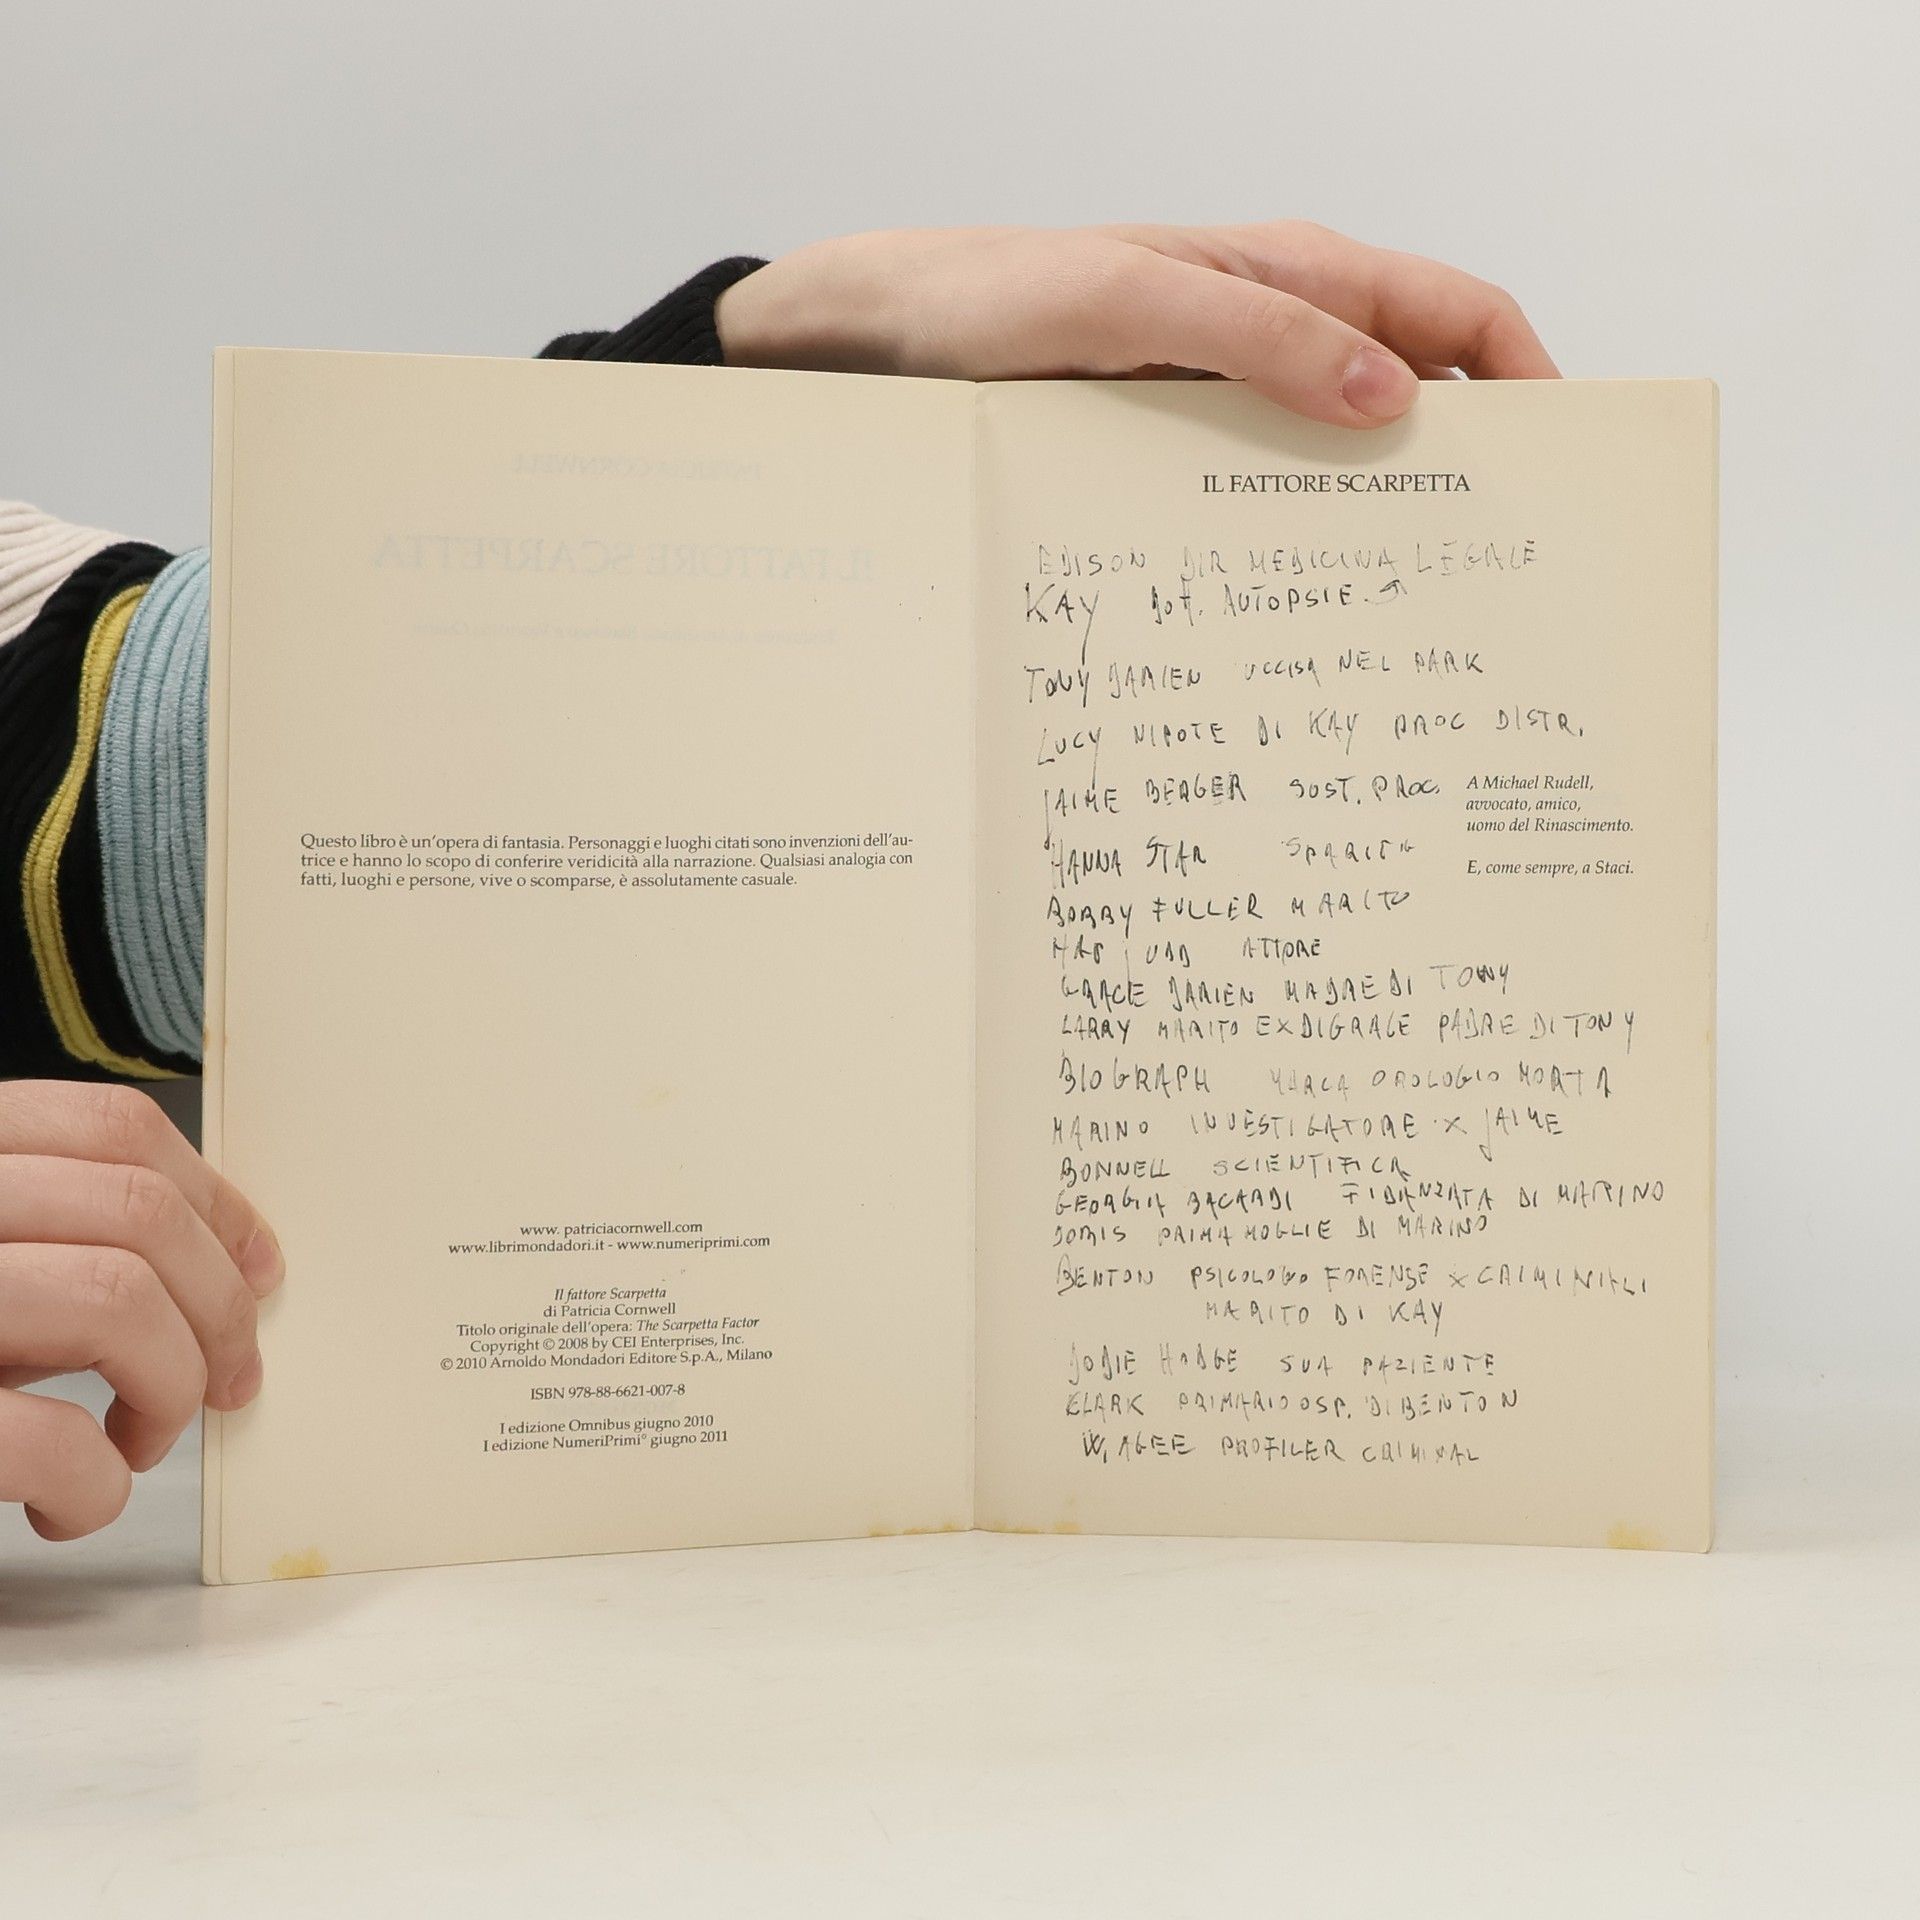 Questo libro è un'opera di fantasia. Personaggi e luoghi citati sono invenzioni dell'au-
trice e hanno lo scopo di conferire veridicità alla narrazione. Qualsiasi analogia con
fatti, luoghi e persone, vive o scomparse, è assolutamente casuale.
www. patriciacornwell.com
www.librimondadori.it - www.numeriprimi.com
Il fattore Scarpetta
di Patricia Cornwell
Titolo originale dell'opera: The Scarpetta Factor
Copyright © 2008 by CEI Enterprises, Inc.
© 2010 Arnoldo Mondadori Editore S.p.A., Milano
ISBN 978-88-6621-007-8
I edizione Omnibus giugno 2010
I edizione NumeriPrimi° giugno 2011
IL FATTORE SCARPETTA
EDISON DIR MEDICINA LEGALE
KAY DOT. AUTOPSIE
TONY DARIEN UCCISA NEL PARK
LUCY NIPOTE DI KAY PROC DISTR.
JAIME BERGER SOST. PROC.
HANNA STAR SPARITA
BOBBY FULLER MARITO
HAP JUDD ATTORE
GRACE DARIEN MADRE DI TONY
LARRY MARITO EX DI GRACE PADRE DI TONY
BIOGRAPH MARCA OROLOGIO MORTA
MARINO INVESTIGATORE X JAIME
BONNELL SCIENTIFICA
GEORGIA BACARDI FIDANZATA DI MARINO
DORIS PRIMA MOGLIE DI MARINO
BENTON PSICOLOGO FORENSE X CRIMINALI
MARITO DI KAY
DODIE HODGE SUA PAZIENTE
CLARK PRIMARIO OSP. DI BENTON
W, AGEE PROFILER CRIMINAL
A Michael Rudell,
avvocato, amico,
uomo del Rinascimento.
E, come sempre, a Staci.